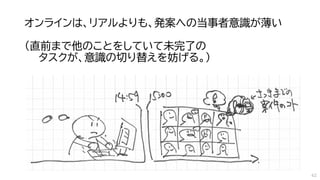 オンラインは、リアルよりも、発案への当事者意識が薄い
（直前まで他のことをしていて未完了の
タスクが、意識の切り替えを妨げる。）
14:59
15:00
さっきまでの
案件のコト